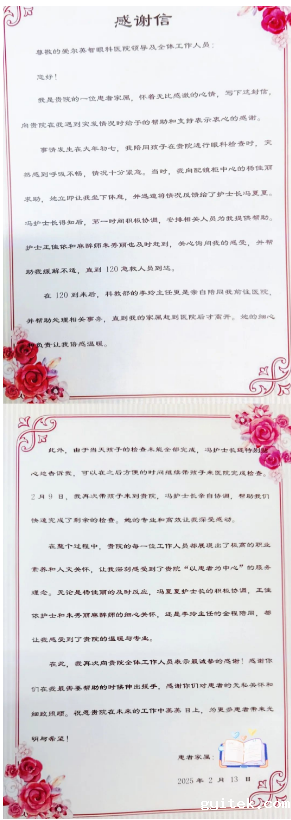 感谢信
尊敬的爱尔英智眼科医院领导及全体工作人员：
您好！
我是贵院的一位患者家属，怀着无比感激的心情，写下这封信，
向贵院在我遇到突发情况时给予的帮助和支持表示衷心的感谢。
事情发生在大年初七，我陪同孩子在贵院进行眼科检查时，突
然感到呼吸不畅，情况十分紧急。当时，我向配镜柜中心的杨佳丽
求助，她立即让我坐下休息，并迅速将情况反馈给了护士长冯夏夏。
冯护士长得知后，第一时间积极协调，安排相关人员给我提供帮助。
护士王佳依和麻醉师朱秀丽也及时赶到，关心询问我的感受，并帮
助我缓解不适，直到 120 急救人员到达。
在 120 到来后，科教部的李玲主任更是亲自陪同我前往医院，
并帮助处理相关事务，直到我的家属赶到医院后才离开。她的细心
和负责让我倍感温暖。
此外，由于当天孩子的检查未能全部完成，冯护士长还特别
心地告诉我，可以在之后方便的时间继续带孩子来医院完成检查。
2 月 9 日，我再次带孩子来到贵院，冯护士长亲自协调，帮助我们
快速完成了剩余的检查。她的专业和高效让我深受感动。
在整个过程中，贵院的每一位工作人员都展现出了极高的职业
素养和人文关怀，让我深刻感受到了贵院“以患者为中心”的服务
理念。无论是杨佳丽的及时反应，冯夏夏护士长的积极协调，王佳
依护士和朱秀丽麻醉师的细心关怀，还是李玲主任的全程陪同，都
让我感受到了贵院的温暖与专业。
在此，我再次向贵院全体工作人员表示最诚挚的感谢！感谢你
们在我最需要帮助的时候伸出援手，感谢你们对患者的无私关怀和
细致照顾。祝愿贵院在未来的工作中蒸蒸日上，为更多患者带来光
明与希望！
患者家属：
2025 年 2 月 13 日
guitek.com